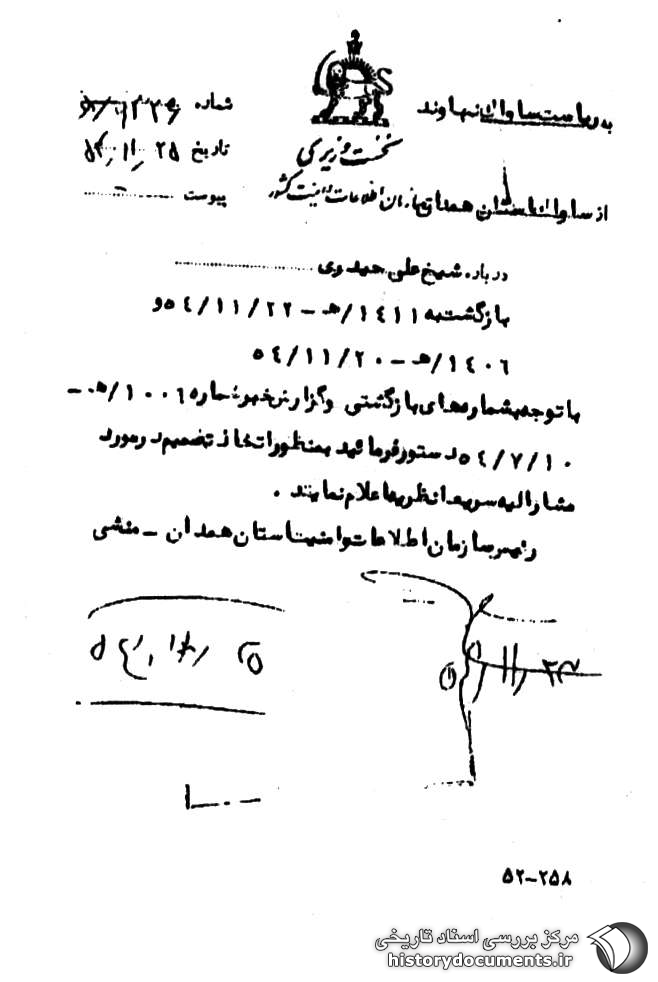 به ریاست ساواک نهاوند
شماره
نخست وزیری
تاریخ ۲۵ / ۱۱ / ۵۴
از ساواک استان همدان
سازمان اطلاعات و امنیت کشور
پیوست
درباره شیخ علی حیدری
بازگشت به ۱۴۱۱/هـ – ۵۴/۱۱/۲۲ و
۱۴۰۶/هـ – ۵۴/۱۱/۲۰
با توجه بشماره‌های بازگشتی و گزارش خبر شماره ۱۰۰۶/هـ –
۵۴/۷/۱۰ دستور فرمائید بمنظور اتخاذ تصمیم در مورد
مشارالیه سریعا نظریه اعلام نمایند .
رئیس سازمان اطلاعات و امنیت استان همدان – منشی
۵۲–۲۵۸
مرکز بررسی اسناد تاریخی
historydocuments.ir